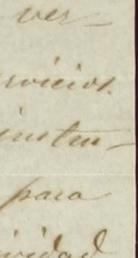 ver
rvicios.
instru-
para
vidad